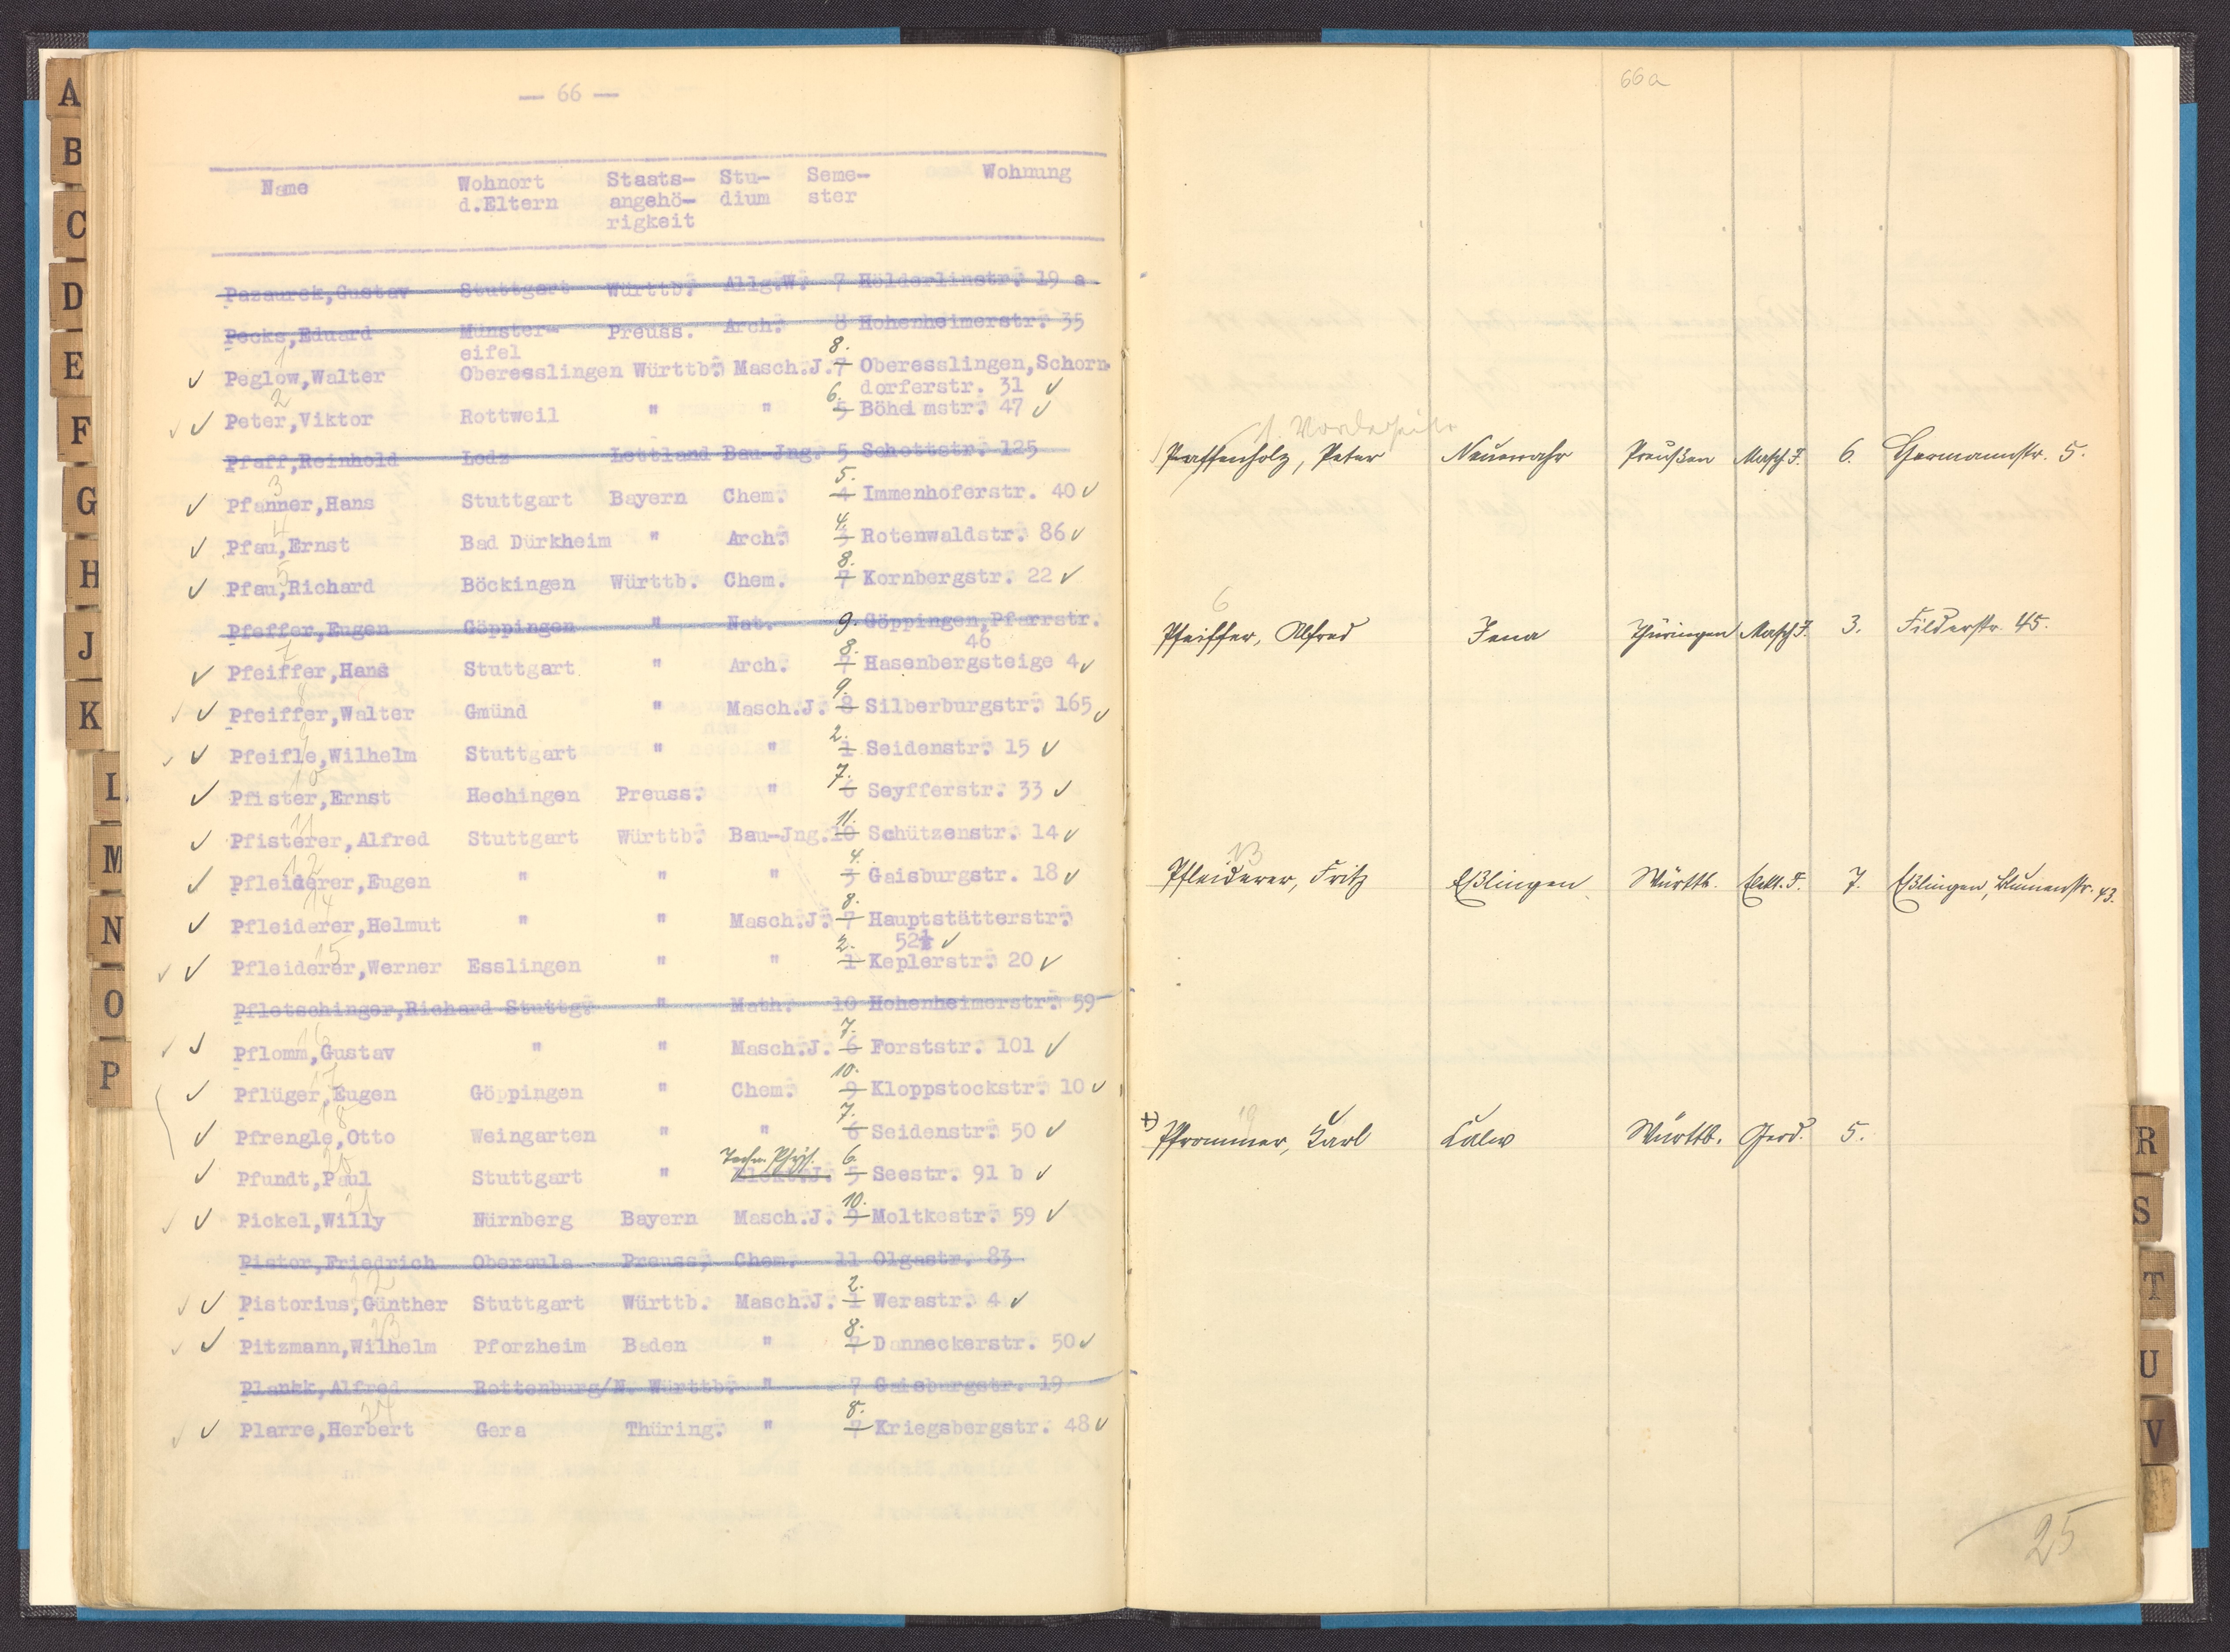 A
B
C
D
E
F
G
H
J
K
L
M
N
O
P
— 66 —
Name Wohnort Staats- Stu- Seme- Wohnung
d.Eltern angehö- dium ster
rigkeit
Pazaurek,Gustav Stuttgart Württb. Allg.W. 7 Hölderlinstr. 19 a
Pecks,Eduard Münster- Preuss. Arch. 8 Hohenheimerstr. 35
1 eifel 8.
✓ Peglow,Walter Oberesslingen Württb. Masch.J. 7 Oberesslingen,Schorn
2 6. dorferstr. 31 ✓
✓ ✓ Peter,Viktor Rottweil " " 5 Böheimstr. 47 ✓
Pfaff,Reinhold Lodz Lettland Bau-Jng. 5 Schottstr. 125
3 5.
✓ Pfanner,Hans Stuttgart Bayern Chem. 4 Immenhoferstr. 40 ✓
4 4.
✓ Pfau,Ernst Bad Dürkheim " Arch. 3 Rotenwaldstr. 86 ✓
5 8.
✓ Pfau,Richard Böckingen Württb. Chem. 7 Kornbergstr. 22 ✓
Pfeffer,Eugen Göppingen " Nat. 9. Göppingen,Pfarrstr.
7 8. 46
✓ Pfeiffer,Hans Stuttgart " Arch. 7 Hasenbergsteige 4 ✓
8 9.
✓ ✓ Pfeiffer,Walter Gmünd " Masch.J. 8 Silberburgstr. 165 ✓
9 2.
✓ ✓ Pfeifle,Wilhelm Stuttgart " " 1 Seidenstr. 15 ✓
10 7.
✓ Pfister,Ernst Hechingen Preuss. " 6 Seyfferstr. 33 ✓
11 11.
✓ Pfisterer,Alfred Stuttgart Württb. Bau-Jng. 10 Schützenstr. 14 ✓
12 4.
✓ Pfleiderer,Eugen " " " 3 Gaisburgstr. 18 ✓
14 8.
✓ Pfleiderer,Helmut " " Masch.J. 7 Hauptstätterstr.
15 2. 52½ ✓
✓ ✓ Pfleiderer,Werner Esslingen " " 1 Keplerstr. 20 ✓
Pfletschinger,Richard Stuttg. " Math. 10 Hohenheimerstr. 59
16 7.
✓ ✓ Pflomm,Gustav " " Masch.J. 6 Forststr. 101 ✓
17 10.
✓ Pflüger,Eugen Göppingen " Chem. 9 Kloppstockstr. 10 ✓
18 7.
✓ Pfrengle,Otto Weingarten " " 6 Seidenstr. 50 ✓
20 Techn. Phys. 6.
✓ Pfundt,Paul Stuttgart " Elekt.J. 5 Seestr. 91 b ✓
21 10.
✓ ✓ Pickel,Willy Nürnberg Bayern Masch.J. 9 Moltkestr. 59 ✓
Pistor,Friedrich Oberaula Preuss, Chem. 11 Olgastr. 83
22 2.
✓ ✓ Pistorius,Günther Stuttgart Württb. Masch.J. 1 Werastr. 4 ✓
23 8.
✓ ✓ Pitzmann,Wilhelm Pforzheim Baden " 7 Danneckerstr. 50 ✓
Plankk,Alfred Rottenburg/N. Württb. " 7 Gaisburgstr. 19
24 8.
✓ ✓ Plarre,Herbert Gera Thüring. " 7 Kriegsbergstr. 48 ✓
66a
s. Vorderseite
Pfaffenholz, Peter Preußen Masch. J. 6. Hermannstr. 5.
6
Pfeiffer, Alfred Jena Thüringen Masch J. 3. Filderstr. 45.
13
Pfleiderer, Fritz Eßlingen Württb. Elekt. J. 7. Eßlingen, Blumenstr. 43.
19
+) Pfrommer, Karl Calw Württb. Geod. 5.
25
R
S
T
U
V